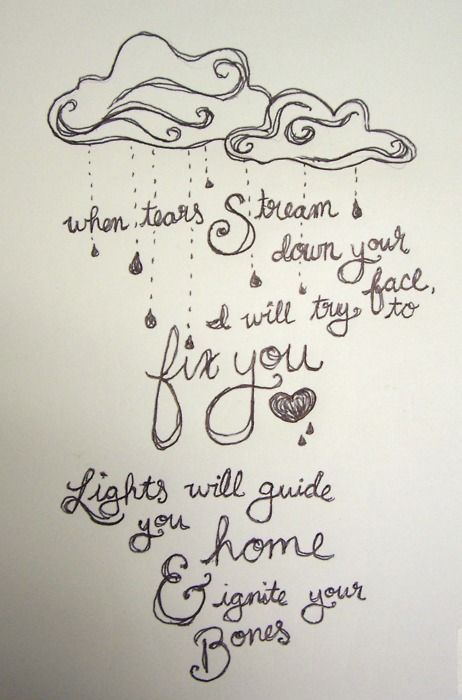 when tears Stream
down your
face,
I will try to
fix you
Lights will guide
you
home
& ignite your
Bones